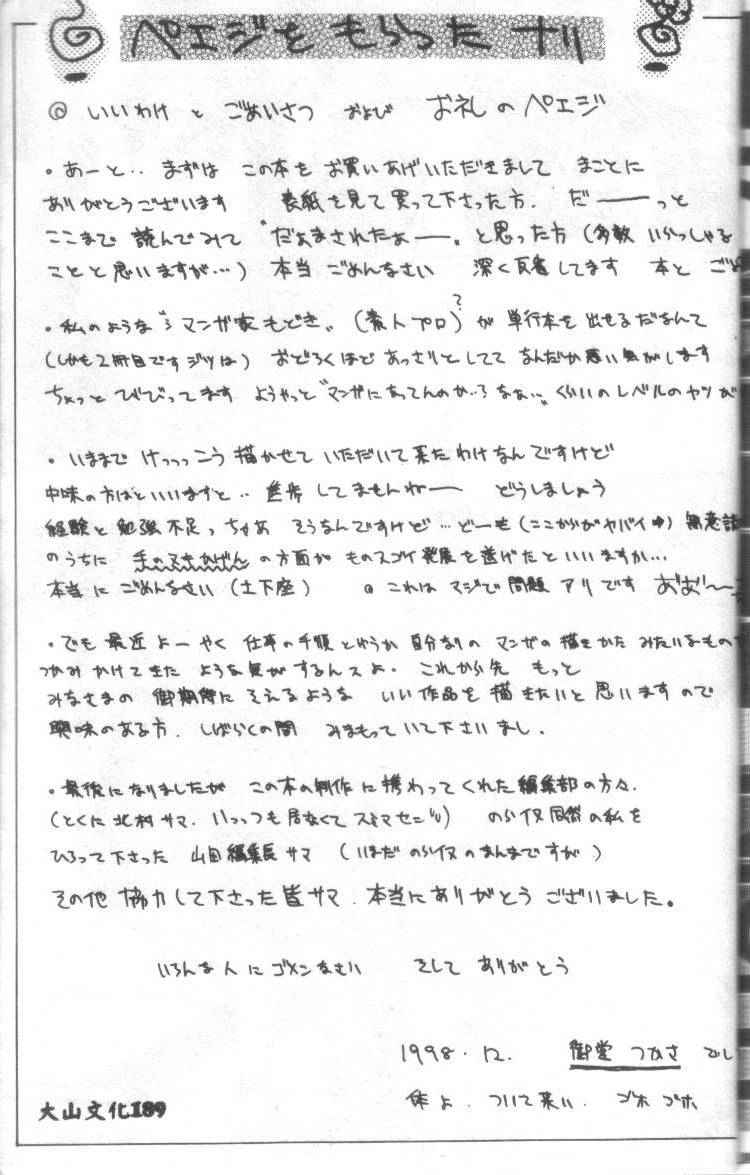 ペエジをもらったナリ
@ いいわけ と ごあいさつ および お礼のペエジ
・あーと・・ まずは この本を お買いあげいただきまして まことに
ありがとうございます 表紙を見て買って下さった方. だーーっと
ここまで 読んでみて “だぁまされたぁー。と思った方 (多数 いらっしゃる
ことと思いますが…) 本当 ごめんなさい 深く反省してます 本と ごめ
・私のような マンガ家もどき。 (素人プロ)?が 単行本を 出せるだなんて
(しかも2冊目です ジツは) おどろくほど あっさりとしてて なんだか悪い気がします
ちょっと びびってます ようやっと “マンガになってんのか・・ なぁ…” くらいのレベルのヤツが
・いままで けっっっこう 描かせて いただいて来たわけなんですけど
中味の方はといいますと・・ 進歩 してませんねー どうしましょう
経験と 勉強不足っちゃあ そうなんですけど… どーも (ここからがヤバイ) 無意識
のうちに 手のヌキかげん の方面が ものスゴイ発展を遂げたといいますか…
本当に ごめんなさい (土下座) @ これは マジで 問題 アリです おおお〜
・でも 最近 よーやく 仕事の手順とゆうか 自分なりの マンガの描きかた みたいなもの
つかみ かけてきた ような気がするんスよ. これから先 もっと
みなさまの 御期待に そえるような いい作品を 描きたいと思いますので
興味のある方. しばらくの間 みまもって いて下さいまし.
・最後になりましたが この本の制作に携わってくれた 編集部の方々.
(とくに 北村サマ. いっっつも 居なくて スミマセン) のらイヌ同然の私を
ひろって下さった 山田編集長サマ (いまだ のらイヌのまんまですが)
その他 協力して下さった皆サマ. 本当にありがとう ございました。
いろんな人に ゴメンなさい そして ありがとう
1998.12. 御堂 つかさ でし
体よ. ついて来い. ゴホ ゴホ
大山文化189